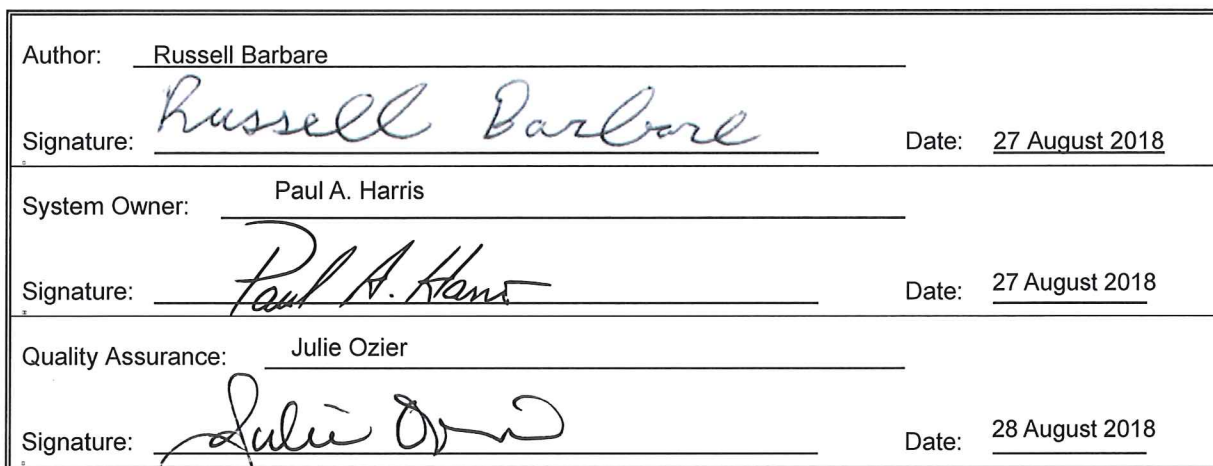 Author: Russell Barbare
Signature: Russell Barbare Date: 27 August 2018
System Owner: Paul A. Harris
Signature: Paul A. Harris Date: 27 August 2018
Quality Assurance: Julie Ozier
Signature: Julie Ozier Date: 28 August 2018